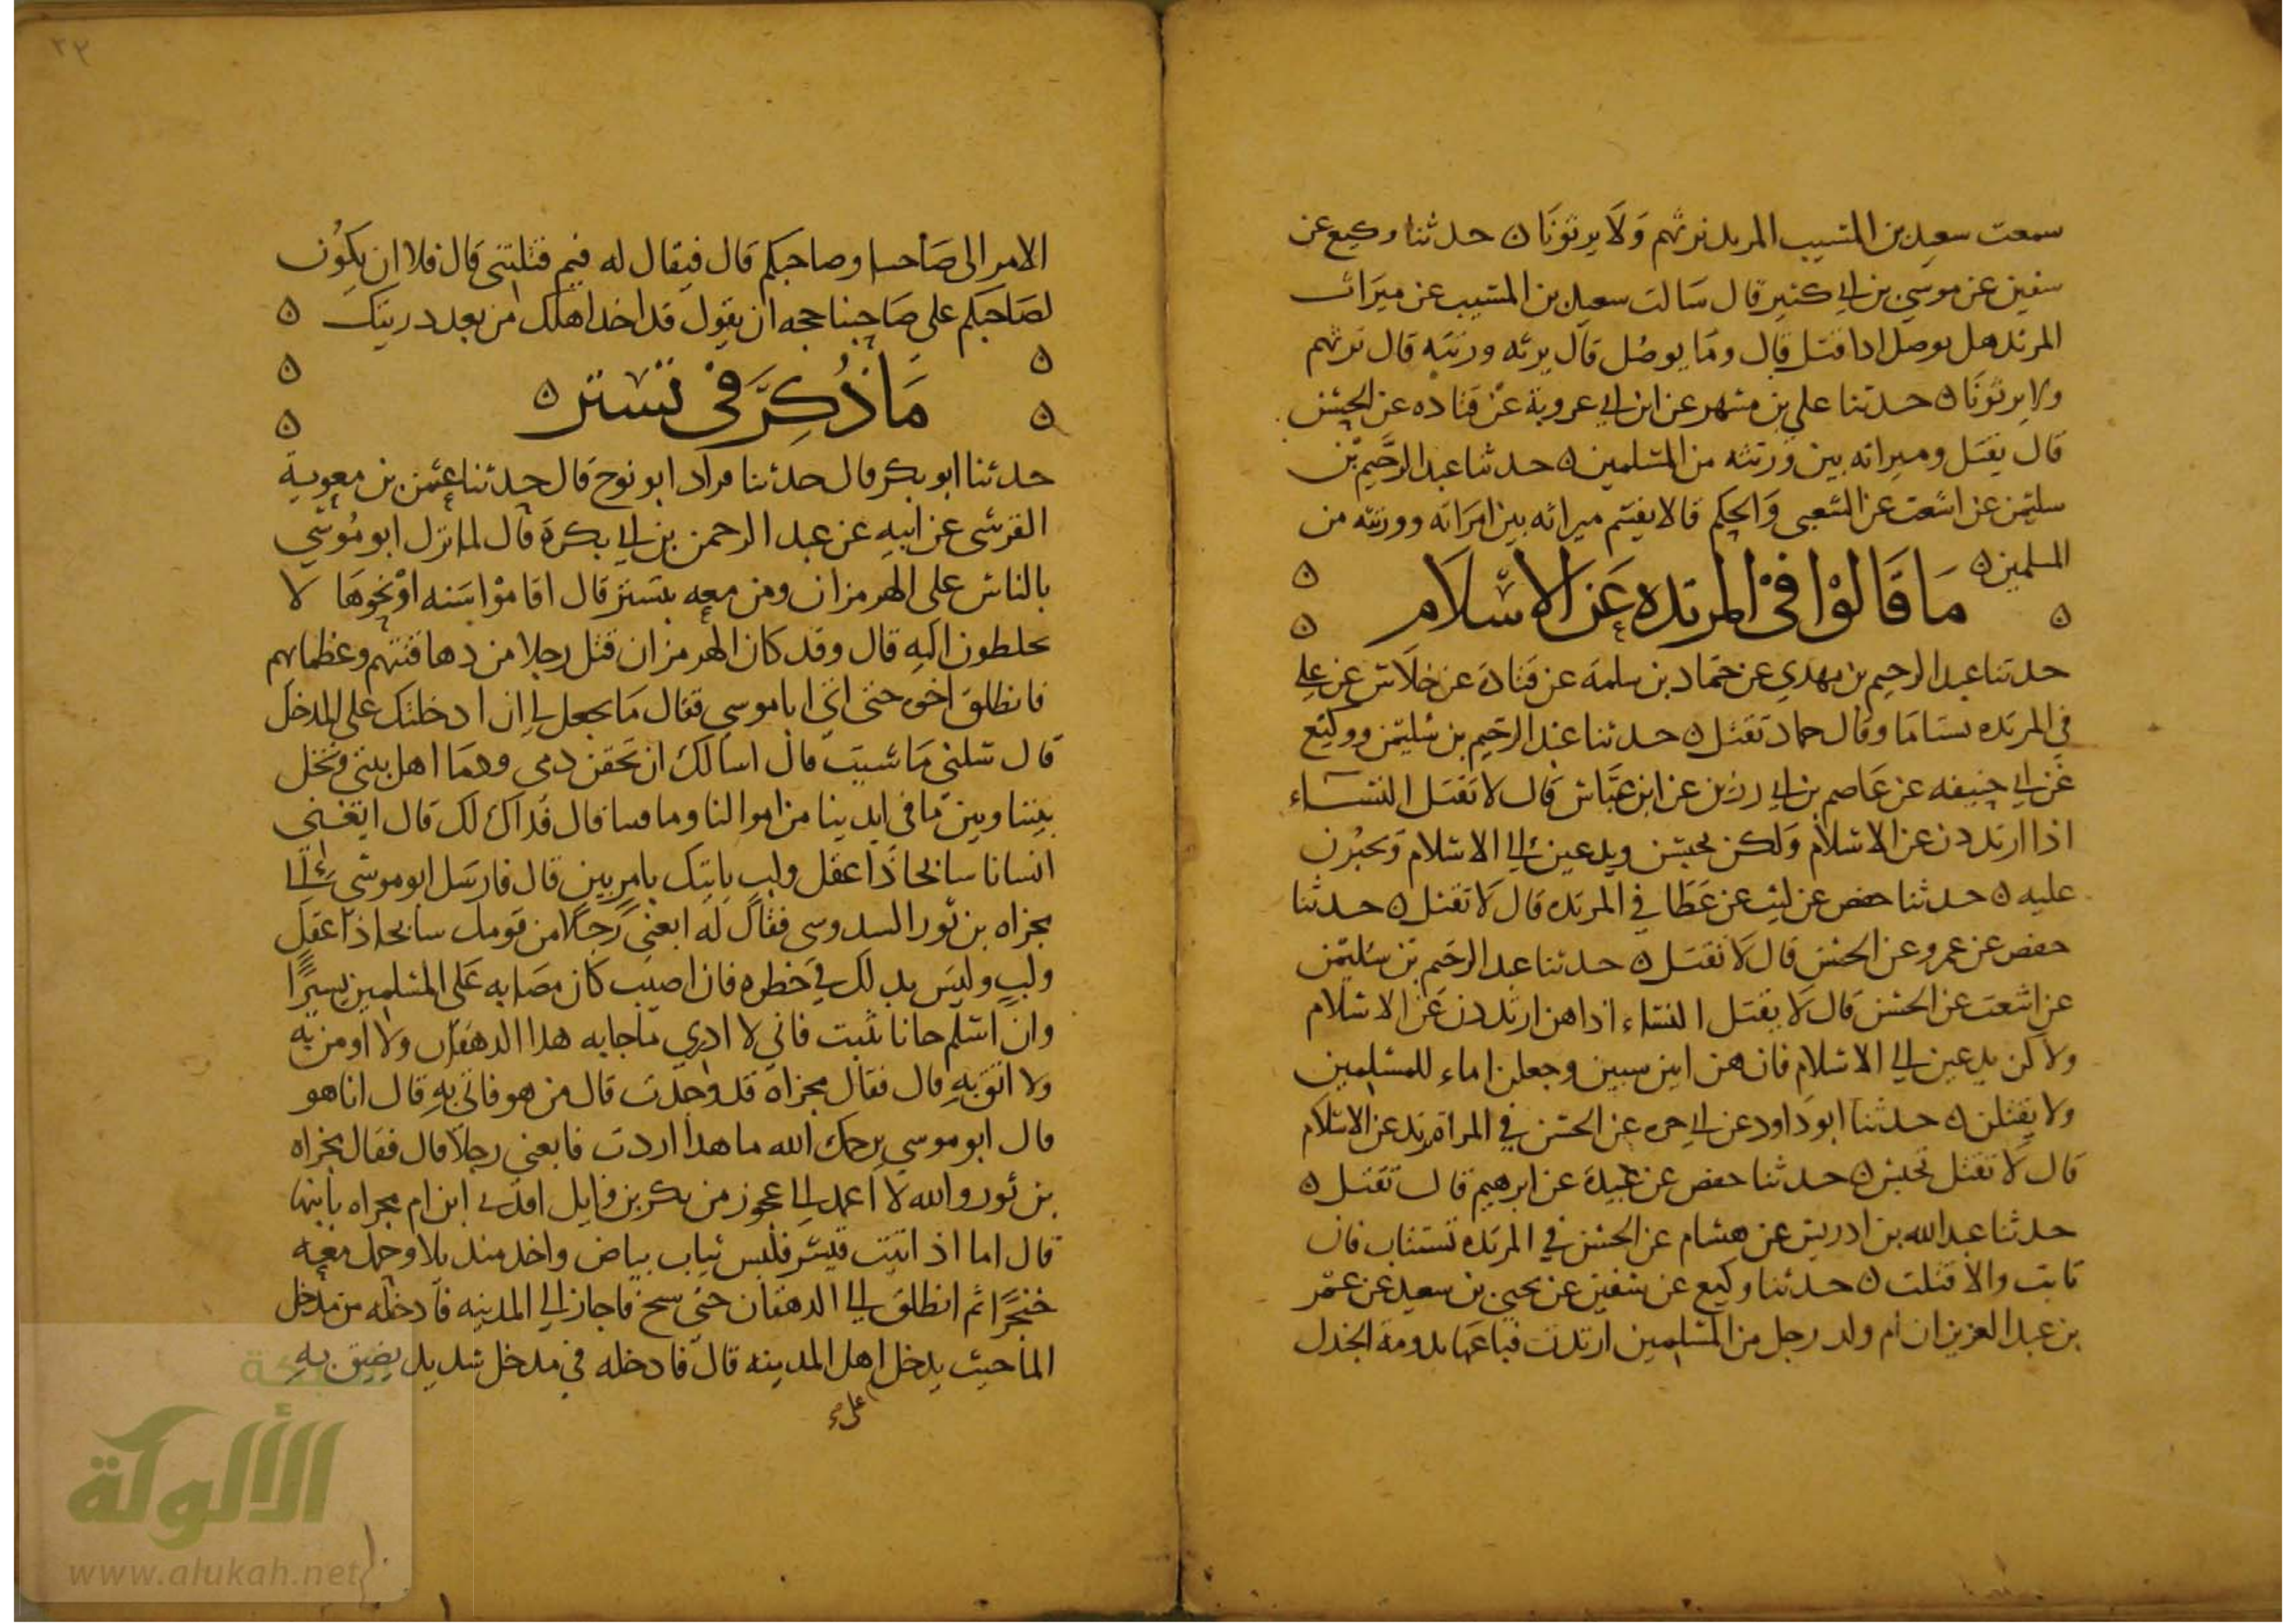 سمعت سعيد بن المسيب المرتد نرثهم وَلَا يرثونَا ن حدثنا وكيع عن
سفين عن موسي بن ابي كثير قال سَالت سعيد بن المسيب عن ميرَاث
المرتد هل يوصل اذا قتل قال ومَا يوصُل قال يرثه ورثته قال نرثهم
ولا يرثونَا ن حدثنا علي بن مسهر عن ابن ابي عروبة عن قتاده عن الحسن
قال يقتل وميراثه بين ورثته من المسلمين ن حدثنا عبد الرحيم بن
سليمن عن اشعث عن الشعبي وَالحكم قالا يقسم ميراثه بين امرَاته وورثته من
المسلمين ن
مَا قَالوْا فيْ المرتده عَن الاسْلَام
حدثنا عبد الرحيم بن مهدي عن حماد بن سلمة عن قتادة عن خلَاس عن علي
في المرتده تستامَا وقال حماد تقتل ن حدثنا عبد الرحيم بن سليمن ووكيع
عن ابي حنيفه عن عَاصم بن ابي رزين عن ابن عبَّاس قال لا تقتل النسَاء
اذا ارتددن عن الاسلام وَلكن يحبسن ويدعين الي الاسلام وَيجبُرن
عليه ن حدثنا حفص عن ليث عن عَطَا في المرتده قال لَا تقتل ن حدثنا
حفص عن عمرو عن الحسن قال لَا تقتل ن حدثنا عبد الرحيم بن سُليمن
عن اشعث عن الحسن قال لَا يقتل النساء اذا هن ارتددن عَن الاسلام
ولاكن يدعين الي الاسلام فان هن ابين سبين وجعلن اماء للمسلمين
ولا يقتلن ن حدثنا ابو دَاود عن ابي حره عن الحسن في المراة ترتد عن الاسلام
قال لَا تقتل تحبس ن حدثنا حفص عن عبيدة عن ابرهيم قال تقتل ن
حدثنا عبد الله بن ادريس عن هشام عن الحسن في المرتده تستتاب فان
تابت والا قتلت ن حدثنا وكيع عن سفين عن يحيي بن سعيد عن عمر
بن عبد العزيز ان ام ولد رجل من المسلمين ارتدت فبَاعها بدومة الجندل
٣٢
الامر الى صَاحبنا وصاحبكم قال فيقال له فيم قتلتني قال فلا ان يكوُن
لصَاحبكم علي صَاحبنا حجه ان يقول قد اخذ اهلك من بعد دريتك ن
مَا ذُكِرَ في تسْتر ن
حدثنا ابو بكر قال حدثنا قراد ابو نوح قال حدثنا عثمن بن معوية
القرشى عن ابيهِ عن عبد الرحمن بن ابي بكرة قال لما نزل ابو مُوسي
بالناس على الهرمزان ومن معه بتستر قال اقاموْا سَنه اوْ نحوهَا لا
يخلطون اليهِ قال وقد كان الهرمزان قتل رجلا من دهاقنتهم وعظمايهم
فانطلق اخوه حتى اتي ابا موسي فقال مَا يجعل لي ان ادخلتك علي المدخل
قال سلني مَا شيت قال اسالك ان تحقن دمي ودمَا اهل بيتي وتخل
بيننا وبين مَا في ايدينا من اموالنا ومَا قال فداك لك قال ابغني
انسانا سابحا ذا عقل ولب ياتيك بامر بين قال فارسَل ابو موسي الي
مجزاه بن ثور السدوسي فقال له ابعني رَجلا من قومك سابحا ذا عقل
ولبٍ وليسَ بدلك في خطره فان اصيب كَان مصَابه عَلى المسلمين يسيرًا
وان اسلم جانا بثبت فاني لا ادري مَا جا به هذا الدهقان ولا اومن به
ولا اثق بهِ قال فقال مجزاة قد وجدت قال من هو فاتي بهِ قال انا هو
قال ابو موسي يرحمك الله ما هدا اردت فابعني رجلا قال فقال مجزاه
بن ثور والله لا اعمد الي عجوز من بكر بن وايل افدي ابن ام مجزاه بابنها
قال اما اذ ابيت فيسر فلبس ثياب بياض واخد منديلا وحمل معه
خنجرًا ثم انطلق الي الدهقان حتي سبح فاجاز الي المدينه فادخله من مدخل
الما حيث يدخل اهل المدينه قال فادخله في مدخل شديد يضيق بهِ
شبكة
الألوكة
www.alukah.net